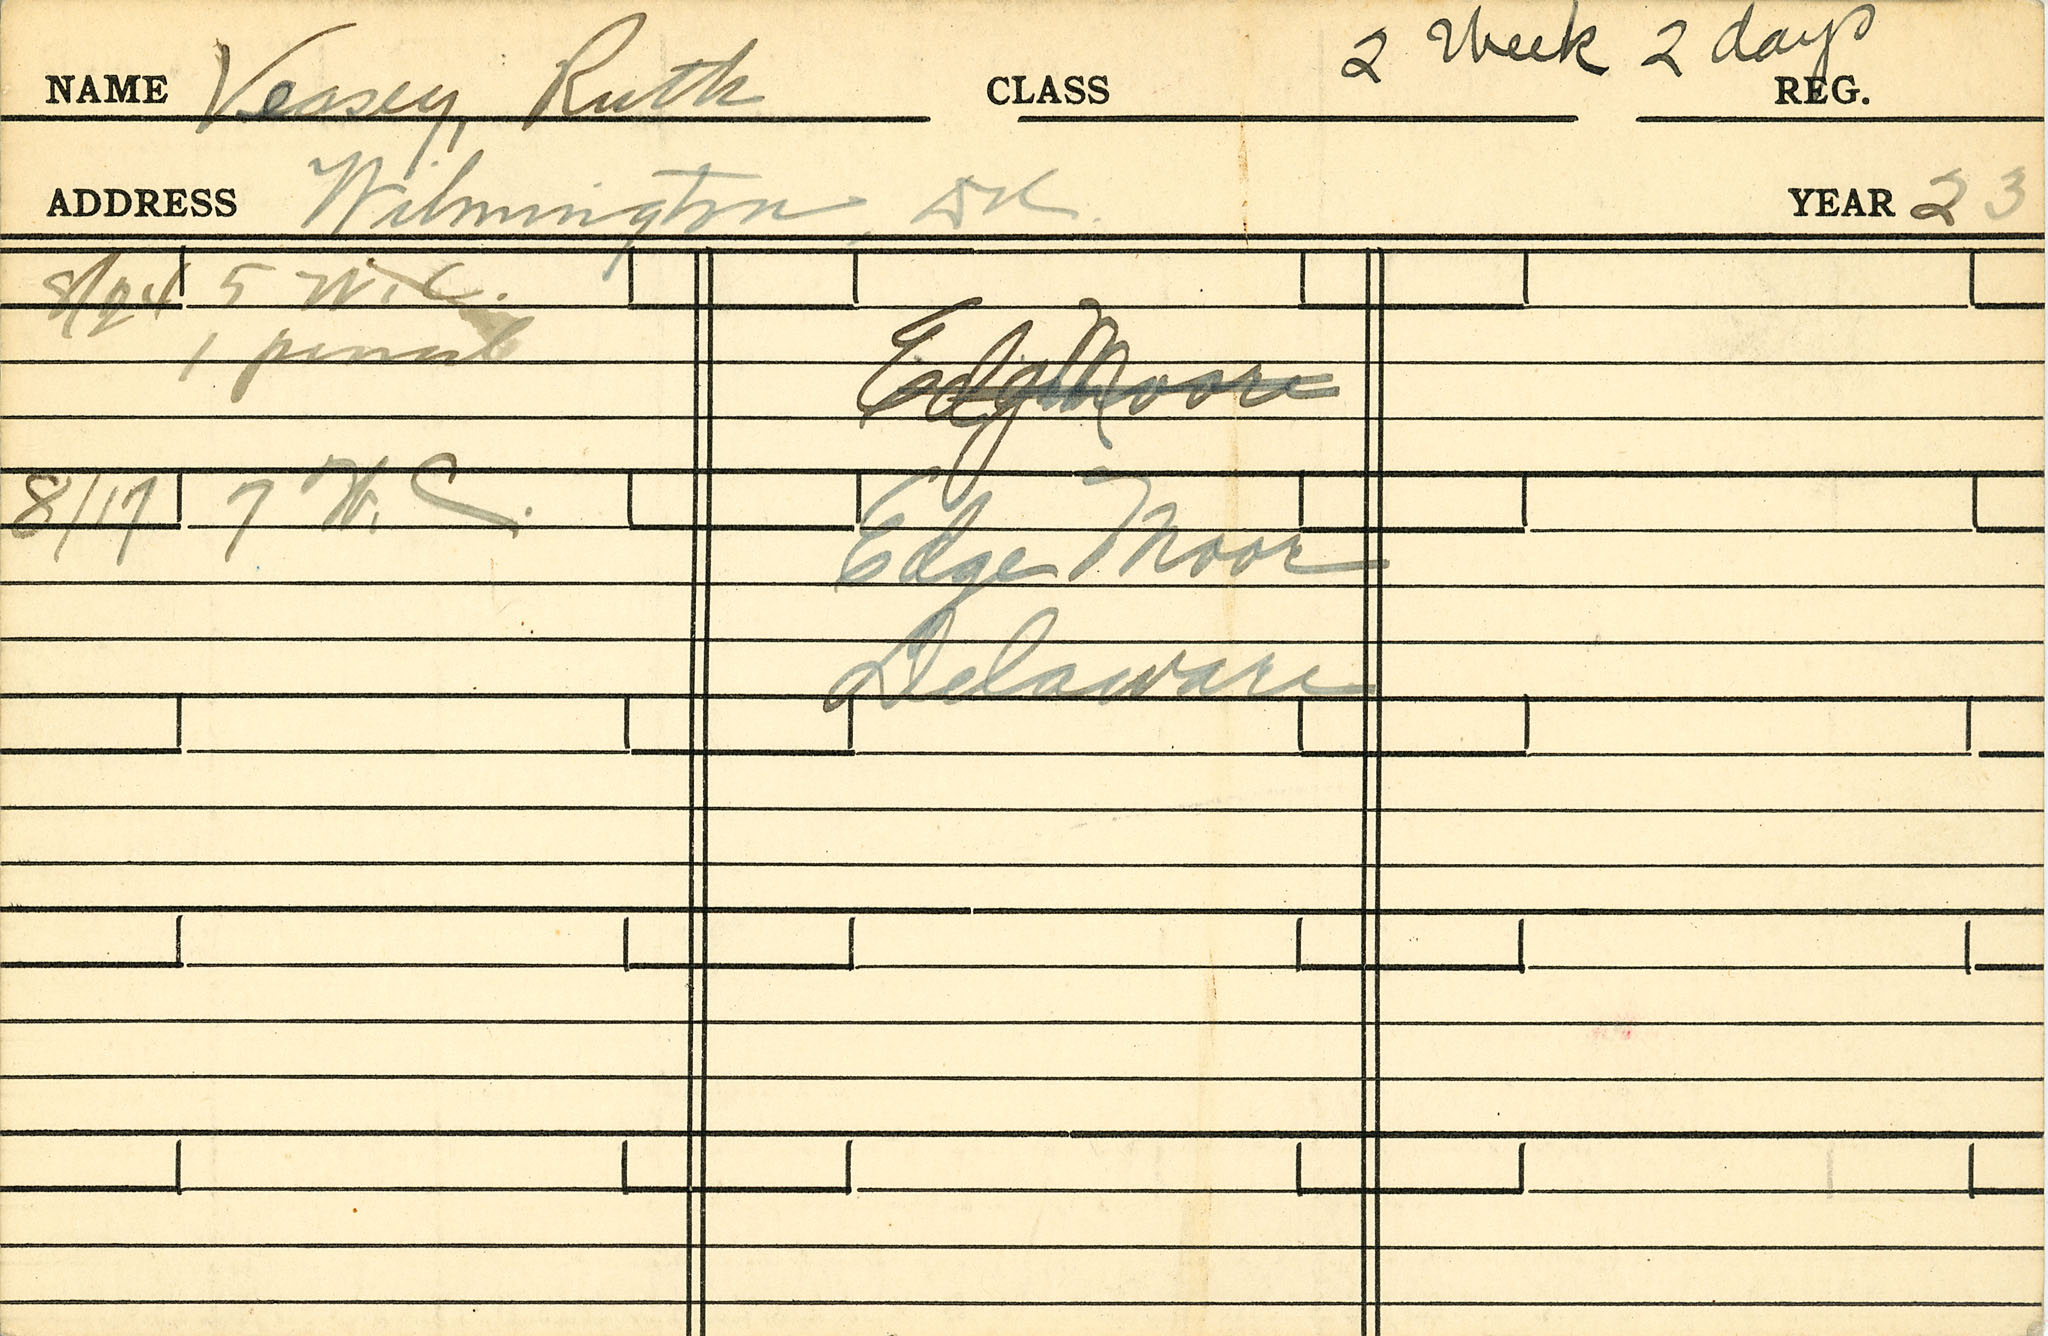 2 Week 2 days
NAME Veasey, Ruth CLASS REG.
ADDRESS Wilmington, Del. YEAR 23
8/24 5 W.C.
1 pencil
Edgmoore
8/17 7 W.C.
Edge Moor
Delaware